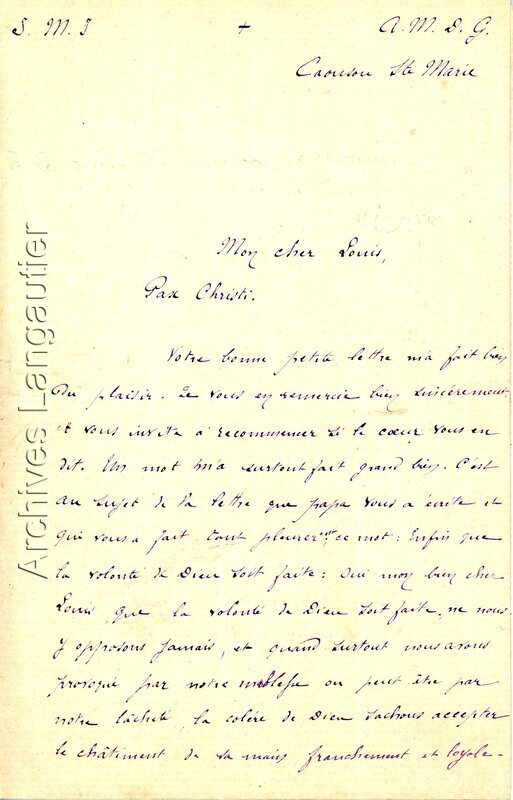 S. M. J + A. M. D. G.
Caousou Ste Marie
Mon cher Louis,
Pax Christi.
Votre bonne petite lettre m'a fait bien
du plaisir. Je vous en remercie bien sincèrement
et vous invite à recommencer si le cœur vous en
dit. Un mot m'a surtout fait grand bien. C'est
au sujet de la lettre que papa vous a écrite et
qui vous a fait tant pleurer, ce mot : Enfin que
la volonté de Dieu soit faite : Oui mon bien cher
Louis, que la volonté de Dieu soit faite, ne nous
y opposons jamais, et quand surtout nous avons
provoqué par notre ou peut être par
notre lâcheté, la colère de Dieu sachons accepter
le châtiment de sa main franchement et loyale-
Archives Langautier